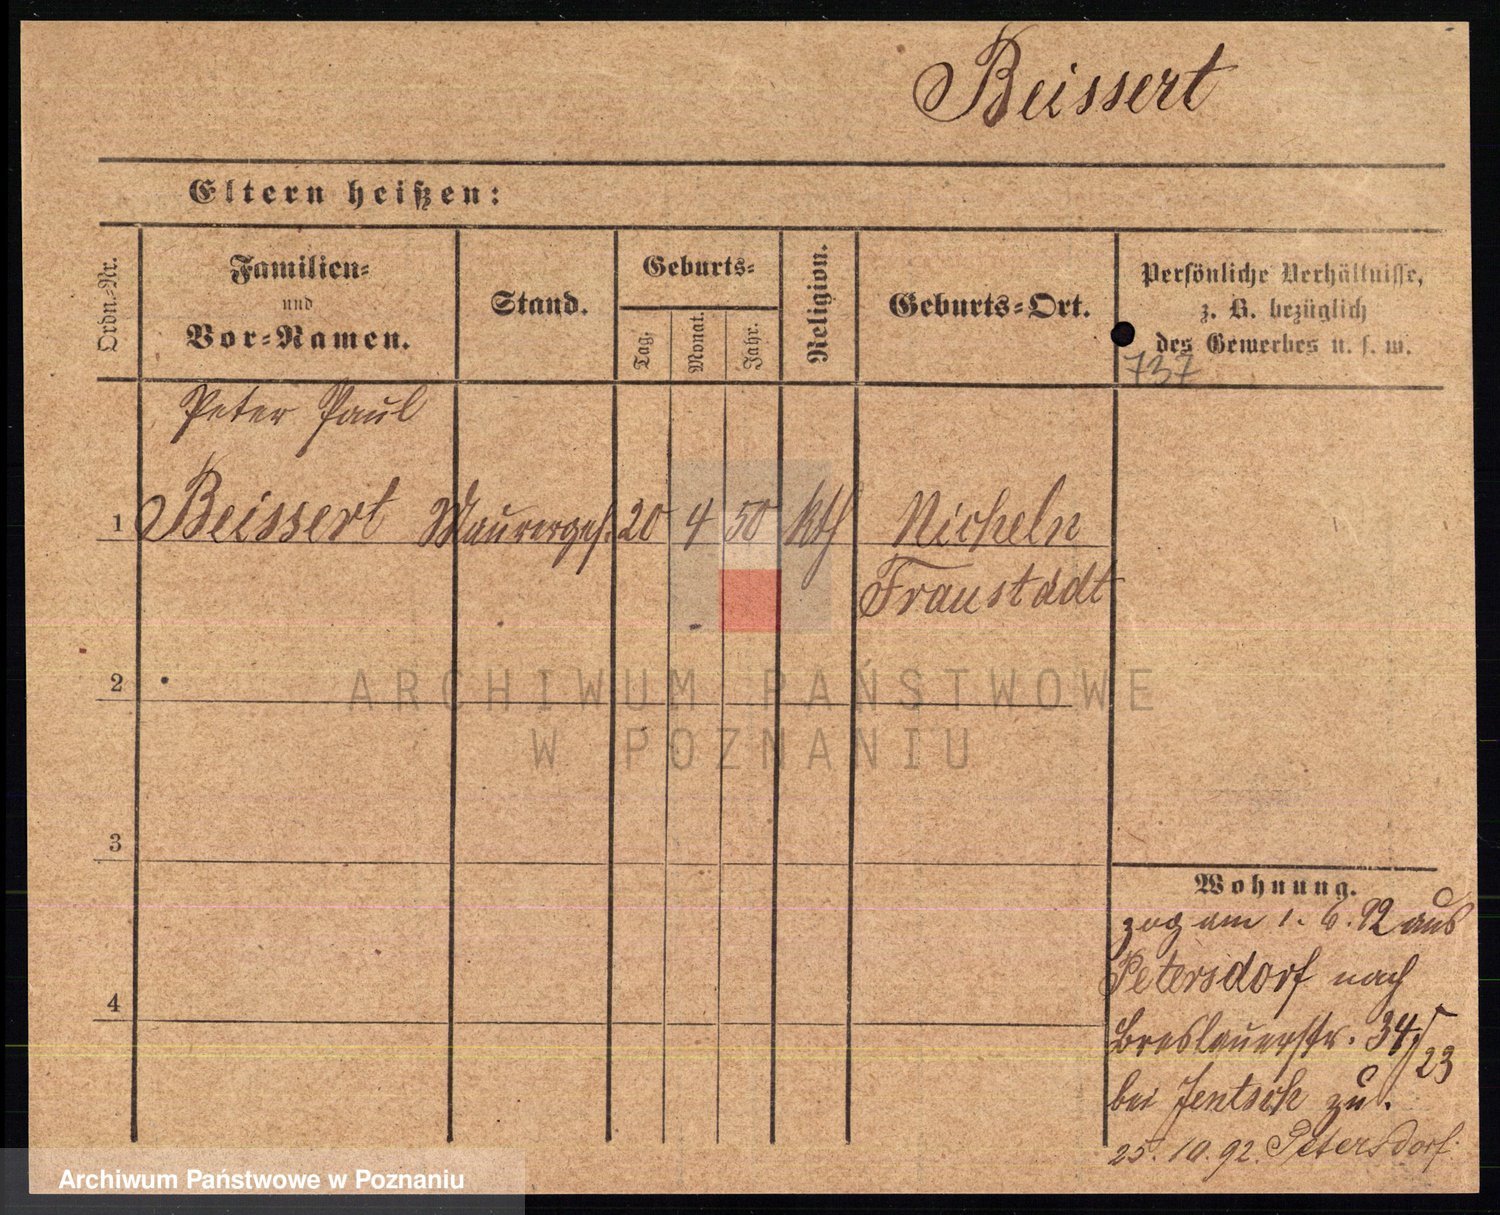 Beissert
Eltern heißen:
Ordn.-Nr.
Familien-
und
Vor-Namen.
Stand.
Geburts-
Tag.
Monat.
Jahr.
Religion.
Geburts-Ort.
Persönliche Verhältnisse,
z. B. bezüglich
des Gewerbes u. s. w.
737
Peter Paul
1 Beissert Maurerges. 20 4 50 kth Nicheln
Fraustadt
2
3
4
ARCHIWUM PAŃSTWOWE
W POZNANIU
Wohnung.
zog am 1. 6. 92 aus
Petersdorf nach
Breslauerstr. 34/23
bei Jentsch zu.
25. 10. 92. Petersdorf.
Archiwum Państwowe w Poznaniu